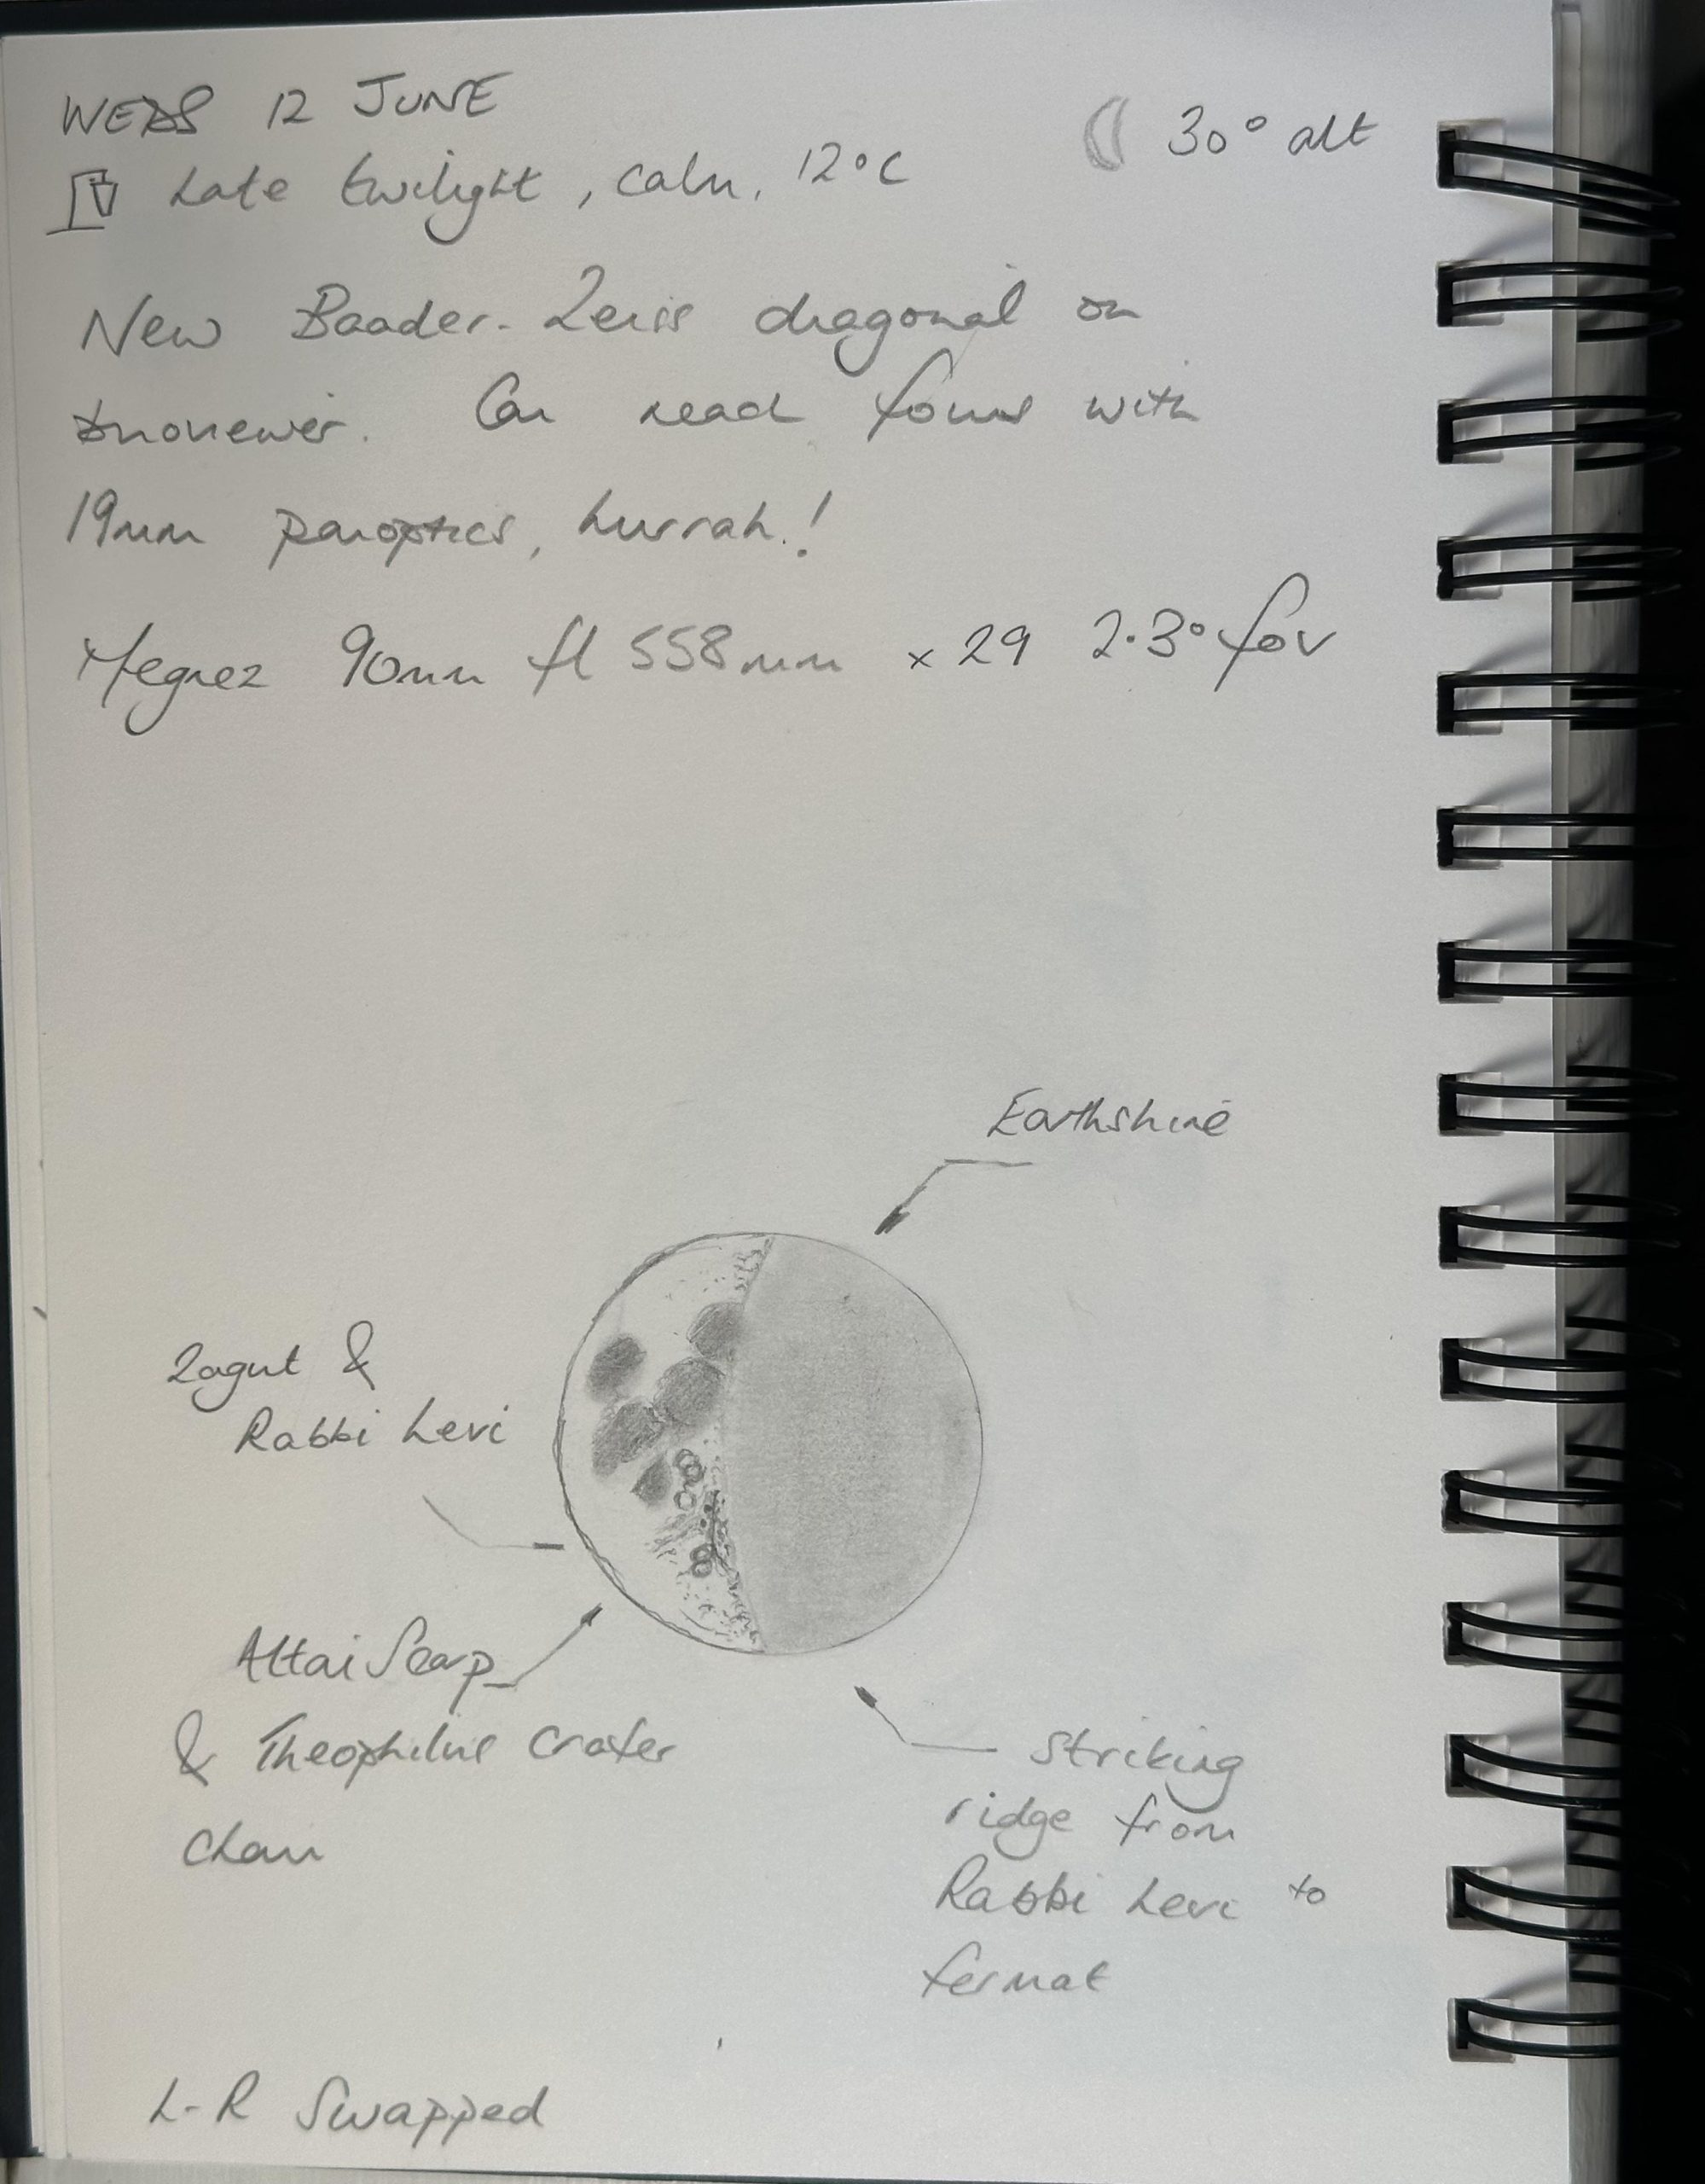 WEDS 12 JUNE
30° alt
Late twilight, calm, 12°C
New Baader-Zeiss diagonal on
binoviewer. Can reach focus with
19mm panoptics, hurrah!
Megrez 90mm fl 558mm x29 2.3° fov
Earthshine
Zagut &
Rabbi Levi
Altai Scarp
& Theophilus crater
chain
Striking
ridge from
Rabbi Levi to
fermat
L-R Swapped